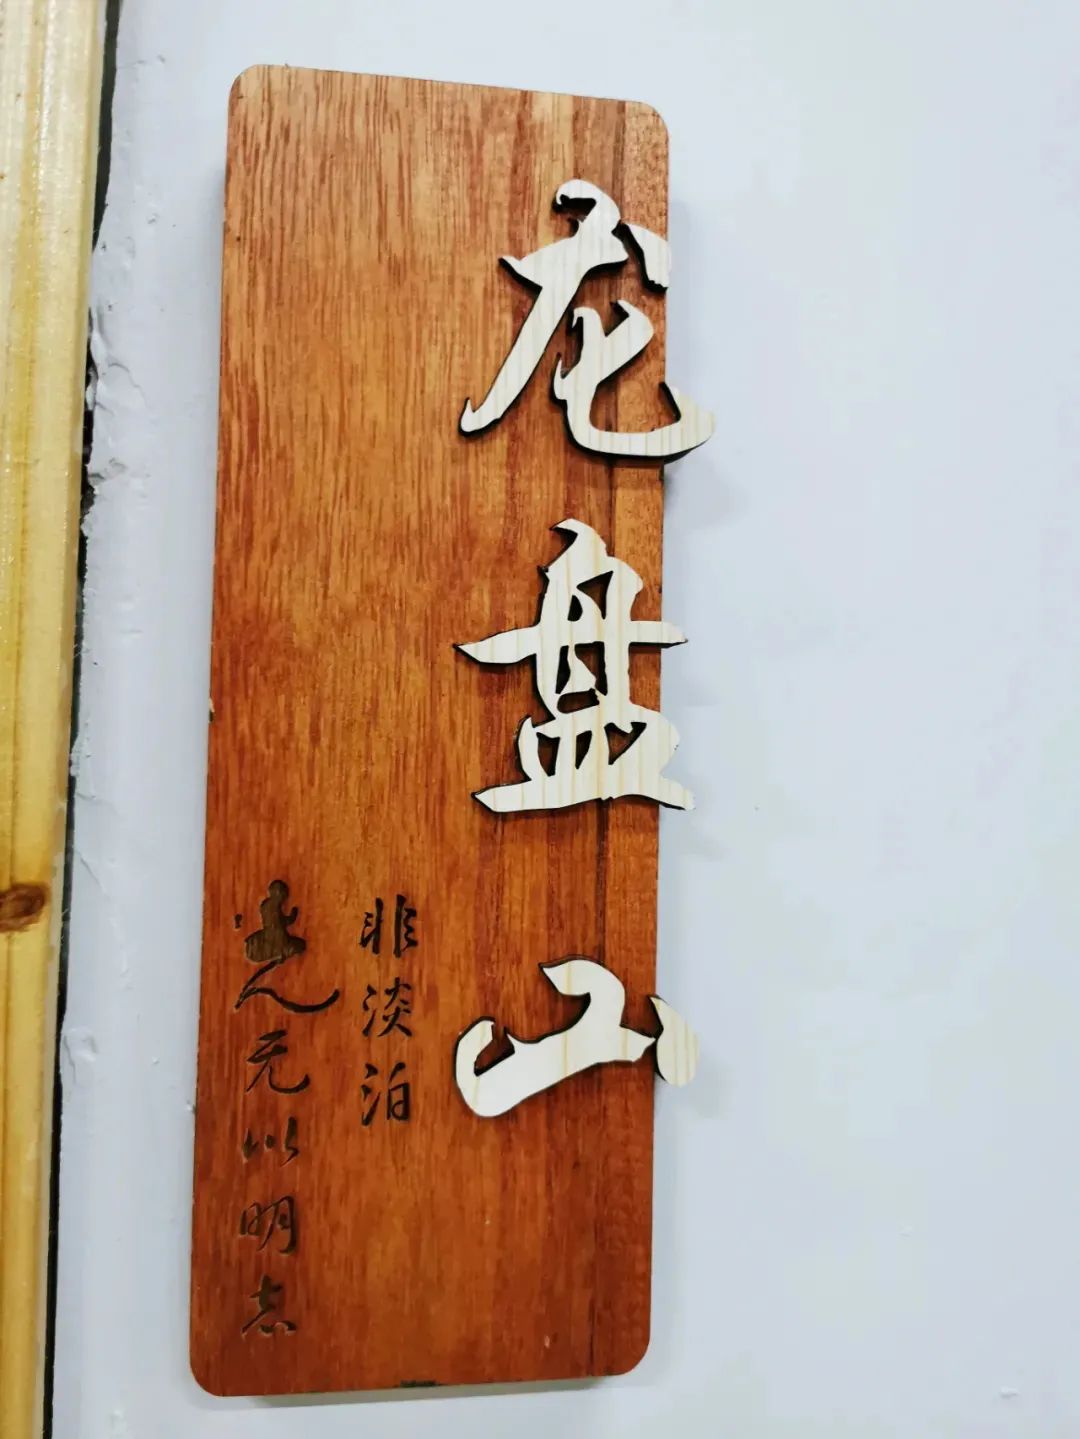 龙盘山
非淡泊
无以明志